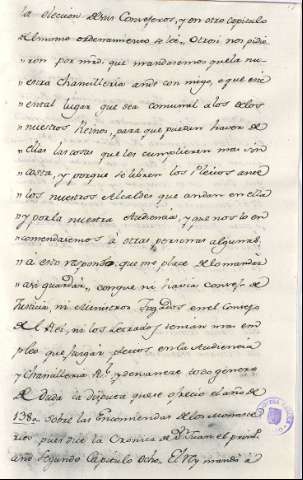 la eleccion de sus Consejeros, y en otro capitulo
del mismo ordenamiento se lei. Otrosi nos pidie
"ron por mrd. que mandaremos que la nu-
"estra Chancilleria ande con migo, o que esté
"en tal lugar que sea comunal a los de los
"nuestros Reinos, para que puedan haver de
"ellas las cosas que les cumplieren mas sin
"costa, y porque se libren los Pleitos ante
"los nuestros Alcaldes que andan en ella
"y por la nuestra Audiencia, y que nos lo en
"comendaremos à otras personas algunas,
"à esto respondo que me place de lo mandar
"asi guardar, conque ni havia Consejo de
Justicia, ni Ministros en el Consejo
de el Rei, ni los Letrados tenian mas em
pleo que juzgar pleitos en la Audiencia
y Chancilleria Rl. y desvanece todo genero
de duda la disputa que se ofrecio el año de
138 sobre las Encomiendas de los Monaste
rios pues dice la Cronica de Dn. Juan el prim.
año segundo Capitulo Ocho. El Rey mandó à